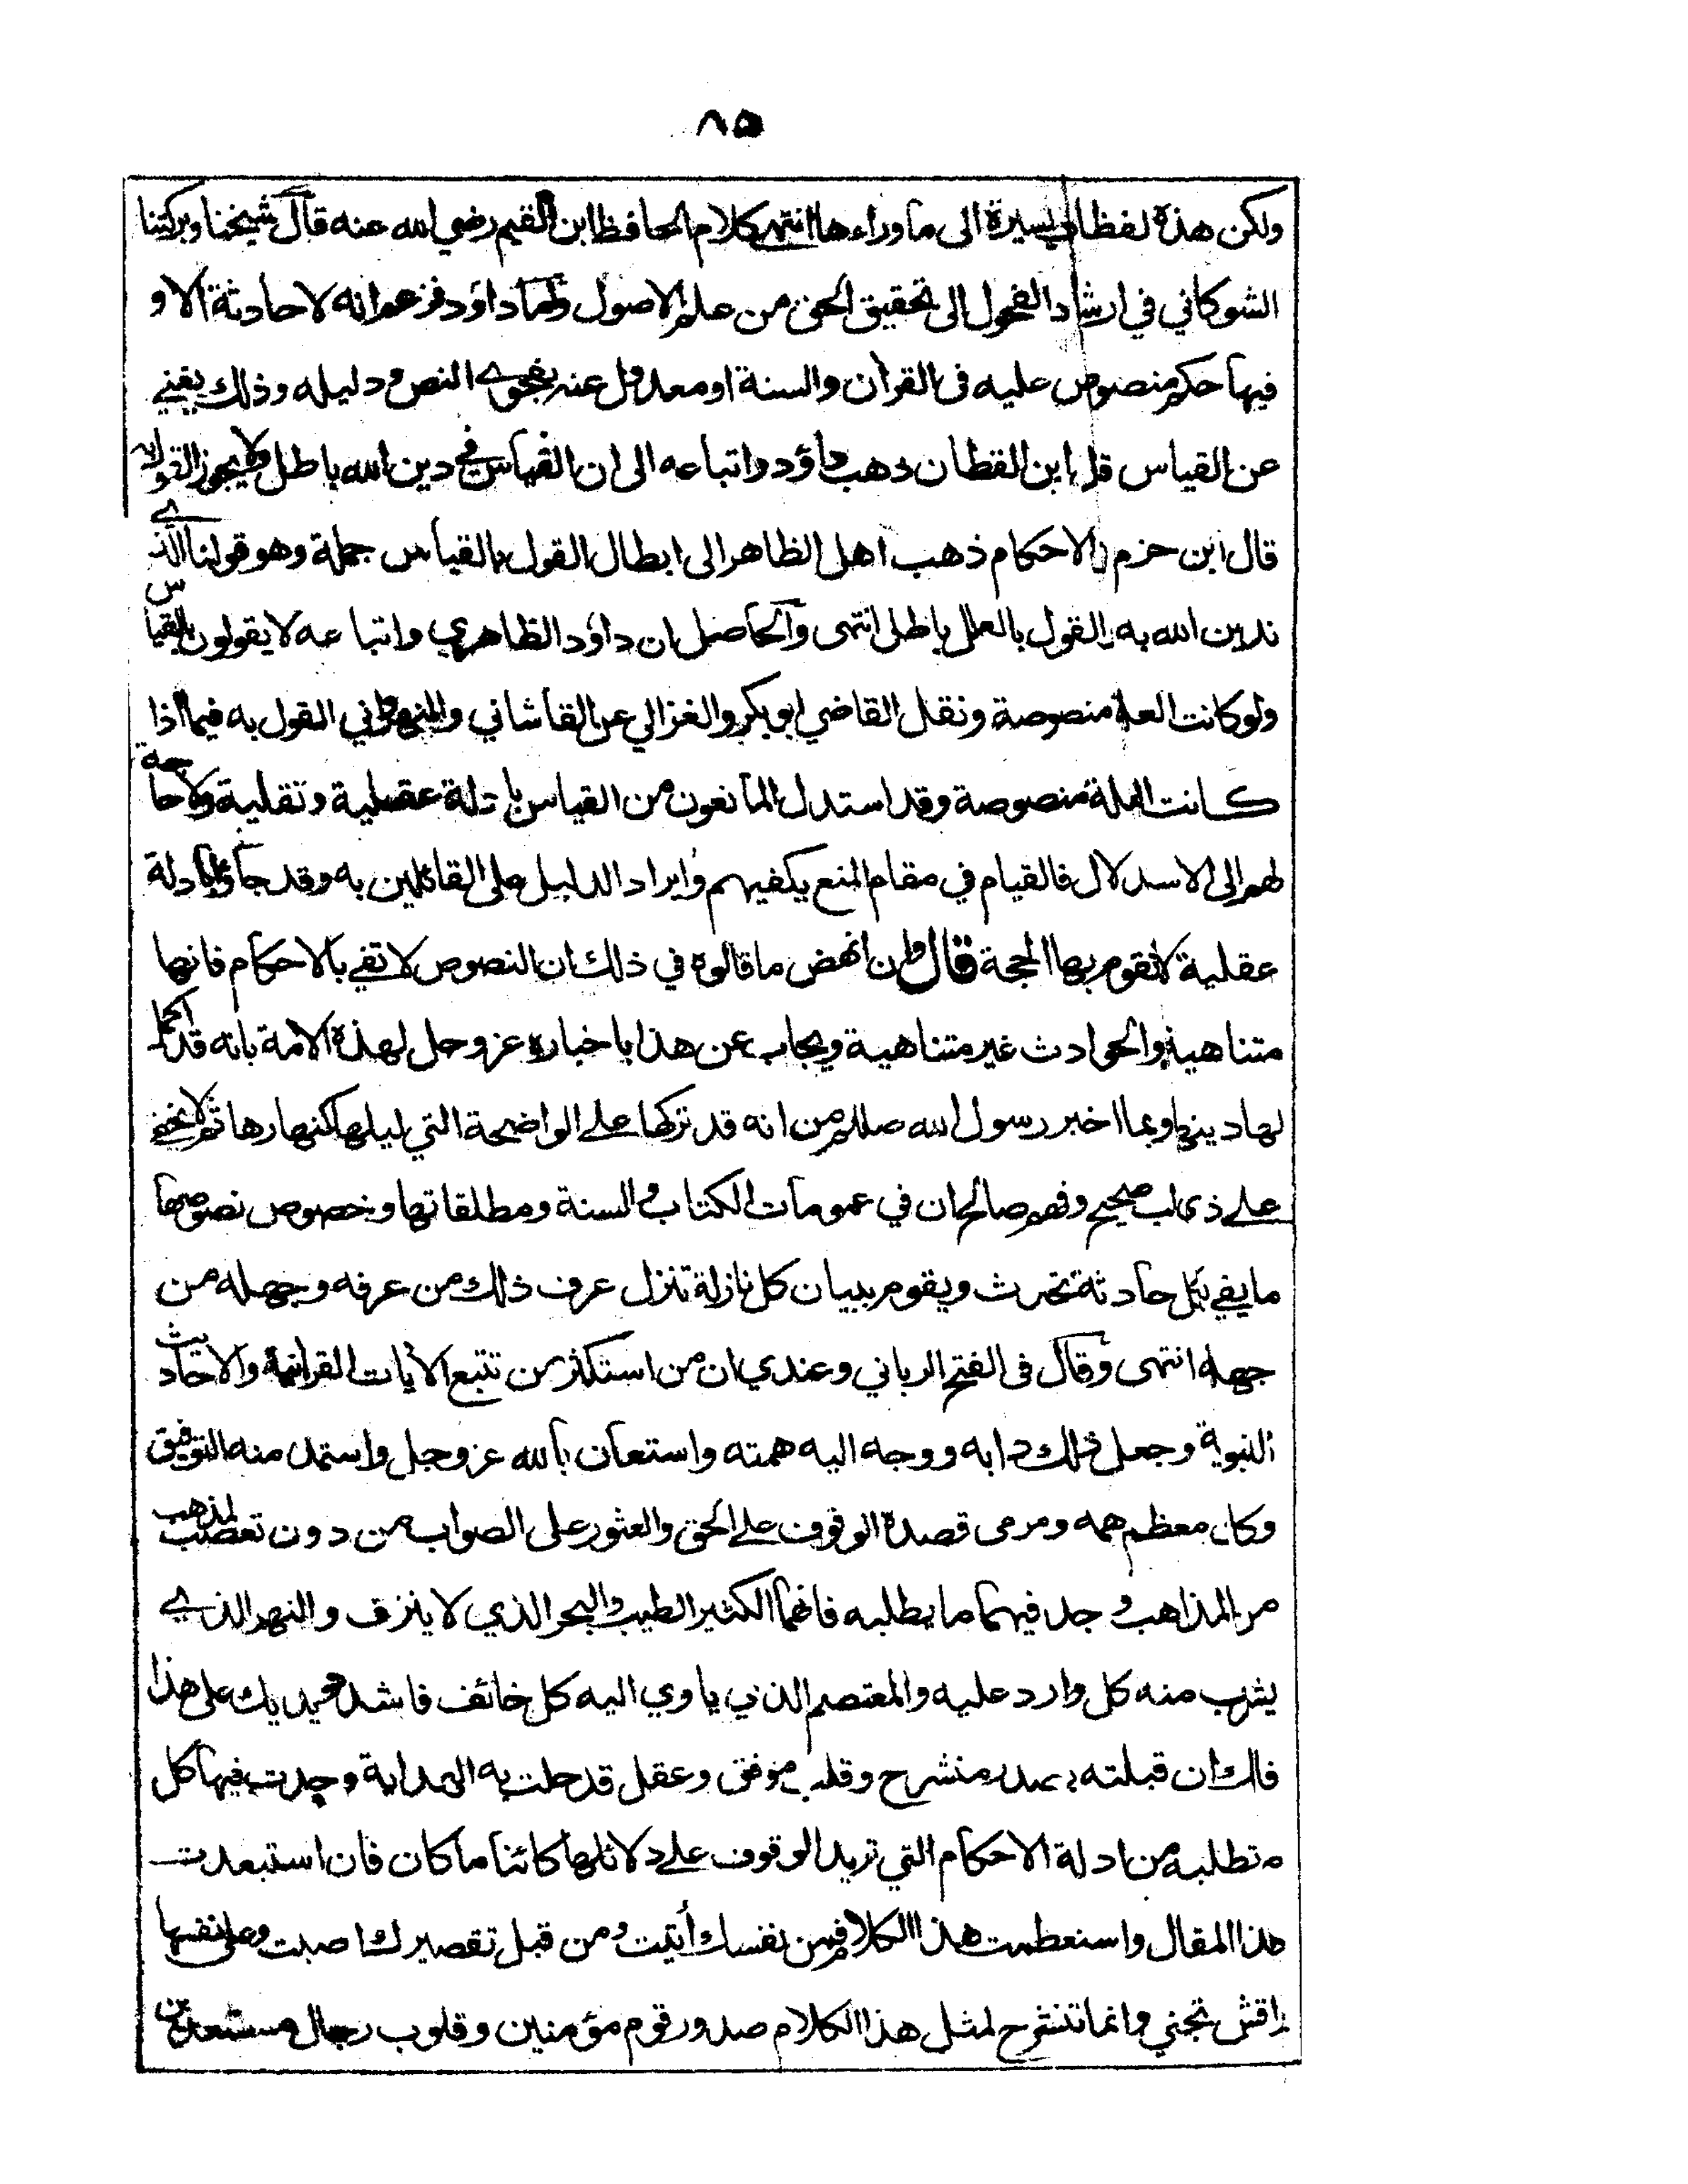 ٨٥
ولكن هذه لفظات يسيرة الى ما وراءها انتهى كلام الحافظ ابن القيم رضي الله عنه قال شيخنا وبركتنا
الشوكاني في ارشاد الفحول الى تحقيق الحق من علم الاصول واما داؤد فزعم انه لا حادثة الا و
فيها حكم منصوص عليه فى القرآن والسنة او معدول عنه بفحوے النص ودليله وذلك يغني
عن القياس قال ابن القطان ذهب داؤد واتباعه الى ان القياس في دين الله باطل ولا يجوز القول به
قال ابن حزم في الاحكام ذهب اهل الظاهر الى ابطال القول بالقياس جملة وهو قولنا الذے
ندين الله به والقول بالعلل باطل انتهى والحاصل ان داؤد الظاهري واتباعه لا يقولون بالقياس
ولو كانت العلة منصوصة ونقل القاضي ابو بكر والغزالي عن القاشاني والنهرواني القول به فيما اذا
كانت العلة منصوصة وقد استدل المانعون من القياس بادلة عقلية ونقلية ولا حاجة
لهم الى الاسدلال فالقيام في مقام المنع يكفيهم وايراد الدليل على القائلين به وقد جاؤا بادلة
عقلية لا تقوم بها الحجة قال وان انهض ما قالوه في ذلك ان النصوص لا تفي بالاحكام فانها
متناهية والحوادث غير متناهية ويجاب عن هذا باخباره عز وجل لهذه الامة بانه قد اكمل
لها دينها وبما اخبر رسول الله صللم من انه قد تركها على الواضحة التي ليلها كنهارها ثم لا يخفے
علے ذى لب صحيح وفهم صالح ان في عمومات الكتاب والسنة ومطلقاتها وخصوص نصوصها
ما يفي بكل حادثة تحدث ويقوم ببيان كل نازلة تنزل عرف ذلك من عرفه وجهله من
جهله انتهى وقال فى الفتح الرباني وعندي ان من استكثر من تتبع الآيات القرآنية والاحاديث
النبوية وجعل ذلك دابه ووجه اليه همته واستعان بالله عز وجل واستمد منه التوفيق
وكان معظم همه ومرمى قصده الوقوف علے الحق والعثور على الصواب من دون تعصب لمذهب
من المذاهب وجد فيهما ما يطلبه فانهما الكثير الطيب والبحر الذي لا ينزف والنهر الذے
يشرب منه كل وارد عليه والمعتصم الذي ياوي اليه كل خائف فاشدد يديك على هذا
فانك ان قبلته بصدر منشرح وقلب موفق وعقل قد حلت به الهداية وجدت فيها كل
ما تطلبه من ادلة الاحكام التي تريد الوقوف علے دلائلها كائنا ما كان فان استبعدت
هذا المقال واستعظمت هذا الكلام فمن نفسك أتيت ومن قبل تقصيرك اصبت وعلى نفسها
براقش تجني وانما تنشرح لمثل هذا الكلام صدور قوم مؤمنين وقلوب رجال مستعدين